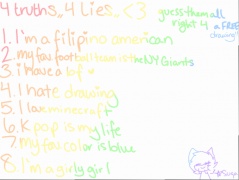 4 truths, 4 lies, <3
guess them all
right 4
a FREE
drawing!!
1. I'm a filipino american
2. my fav football team is the NY Giants
3. i have a bf
4. I hate drawing
5. I lav minecraft
6. K pop is my life
7. my fav color is blue
8. I'm a girly girl